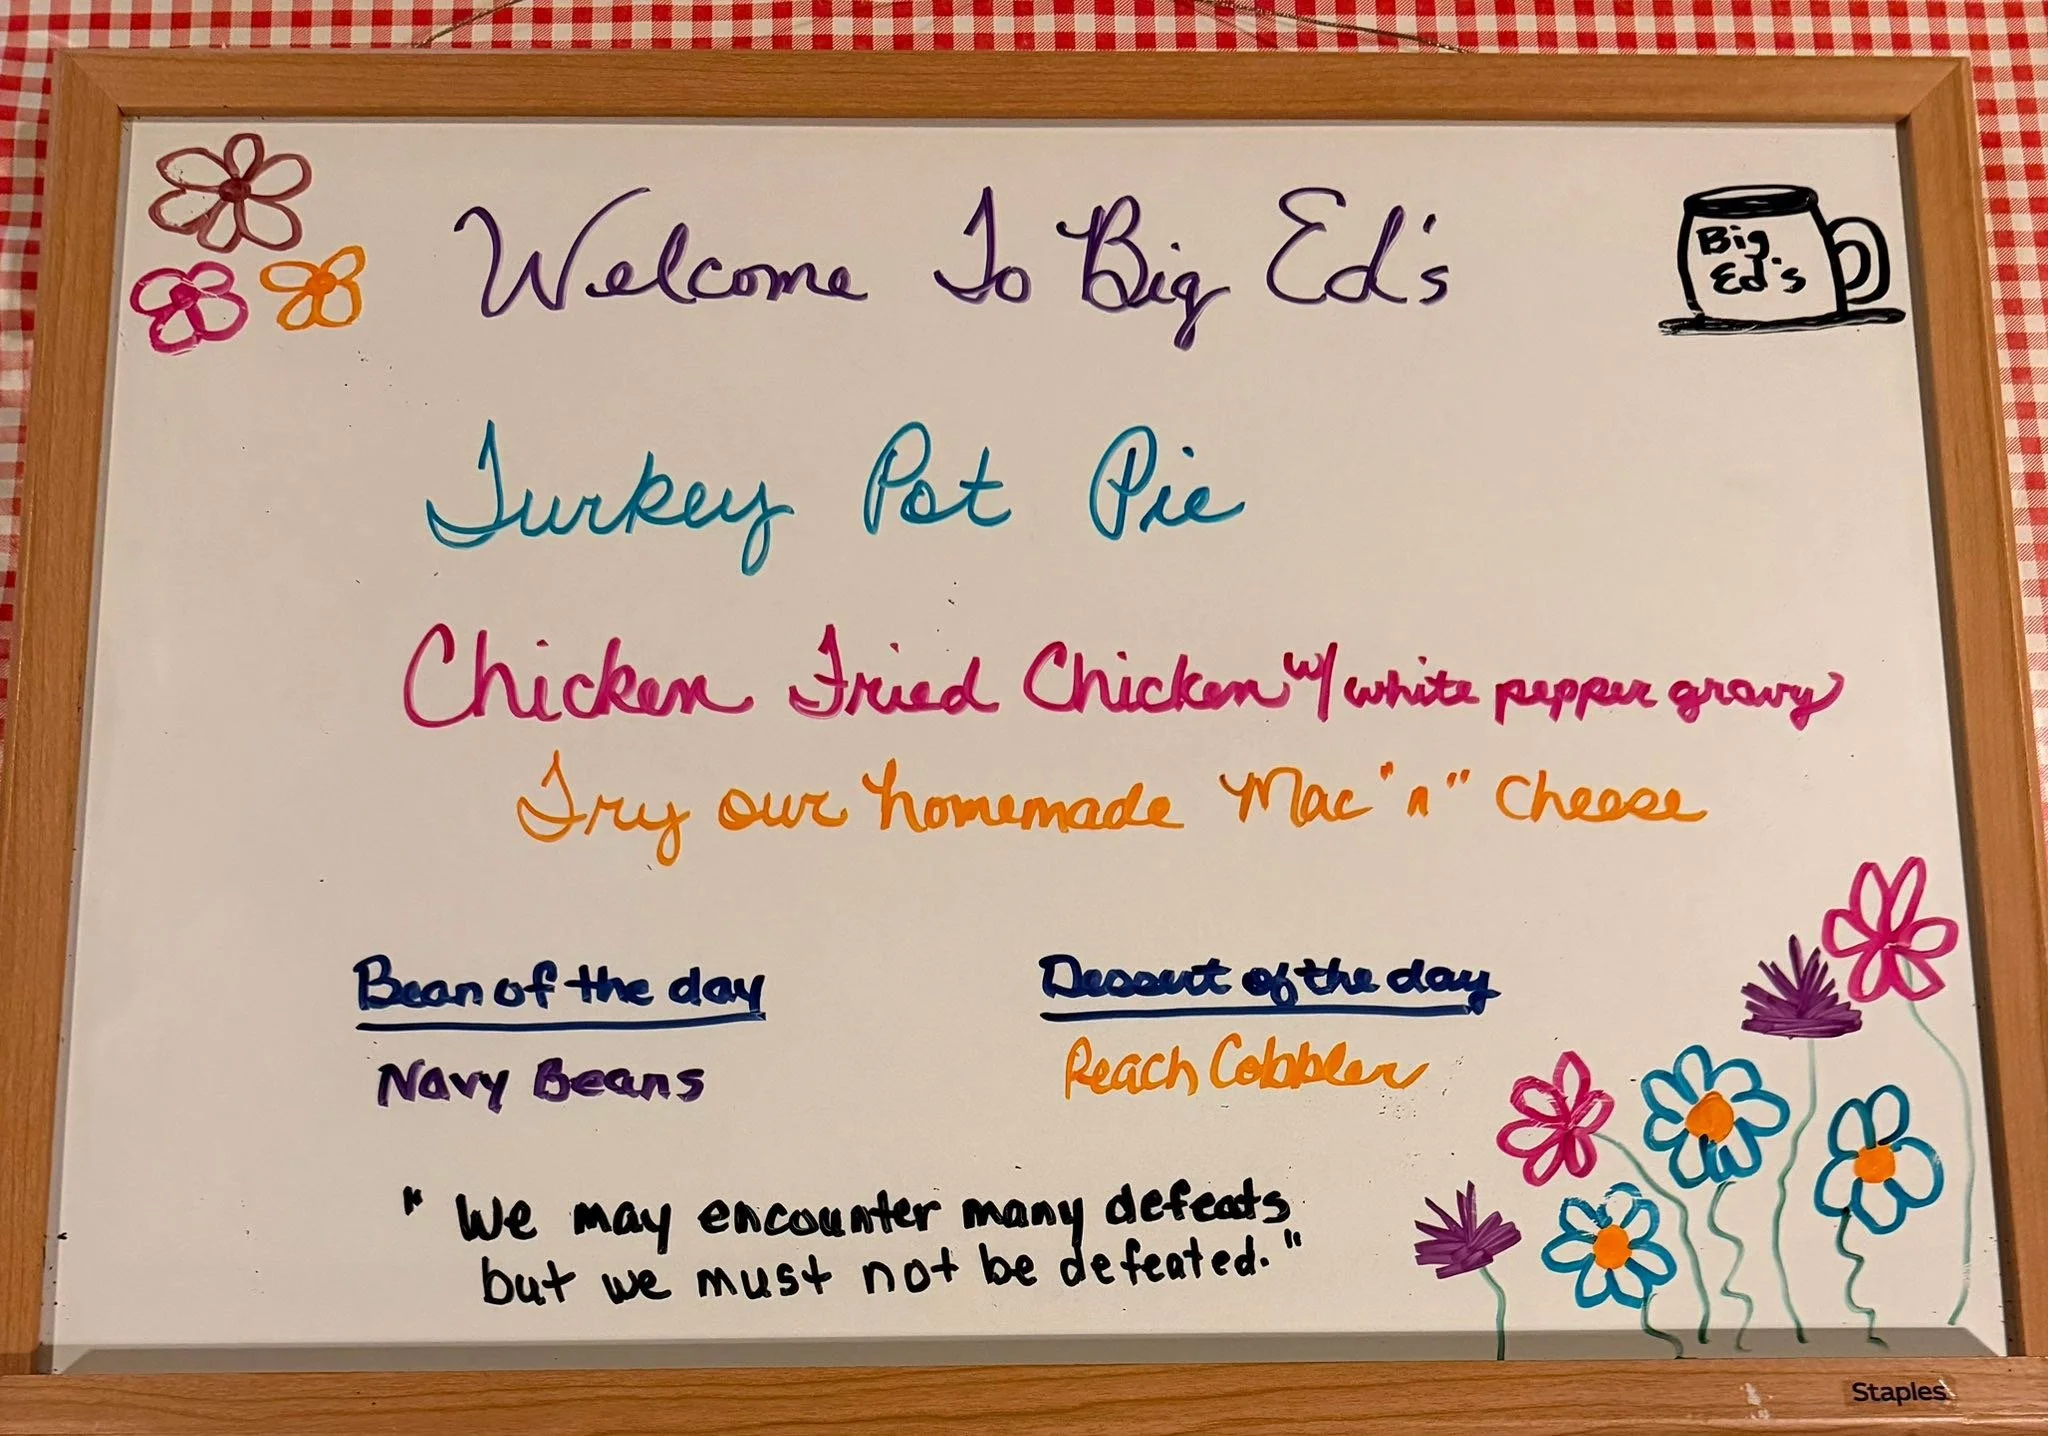 Welcome To Big Ed's
Big
Ed's
Turkey Pot Pie
Chicken Fried Chicken w/ white pepper gravy
Try our homemade Mac "n" Cheese
Bean of the day
Navy Beans
Dessert of the day
Peach Cobbler
"We may encounter many defeats
but we must not be defeated."
Staples